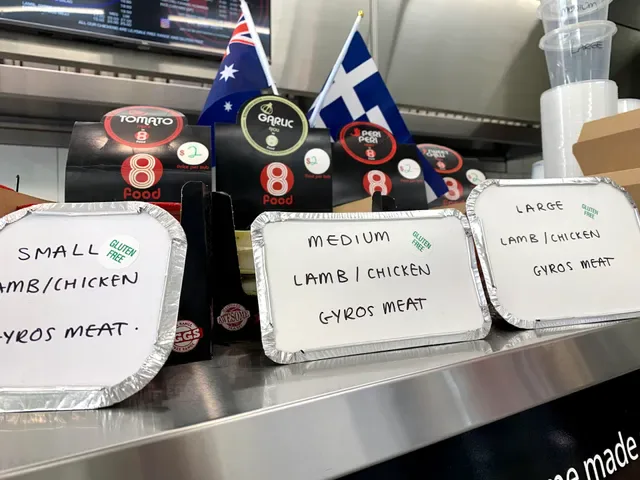 TOMATO
8
$2
price per tub
8
food
GARLIC
8
$2
8
food
PERI
PERI
8
$2
8
8
food
LARGE
SMALL
GLUTEN
FREE
LAMB/CHICKEN
GYROS MEAT.
MEDIUM
GLUTEN
FREE
LAMB / CHICKEN
GYROS MEAT
LARGE
GLUTEN
FREE
LAMB / CHICKEN
GYROS MEAT
made